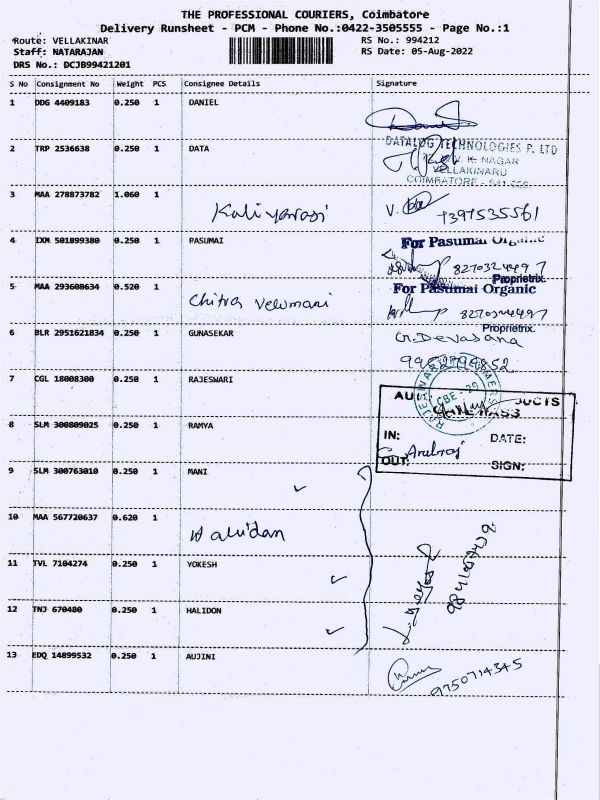 THE PROFESSIONAL COURIERS, Coimbatore
Delivery Runsheet - PCM - Phone No.:0422-3505555 - Page No.:1
Route: VELLAKINAR
RS No.: 994212
Staff: NATARAJAN
RS Date: 05-Aug-2022
DRS No.: DCJB99421201
S No Consignment No Weight PCS Consignee Details Signature
1 DDG 4409183 0.250 1 DANIEL
2 TRP 2536638 0.250 1 DATA
DATALOG TECHNOLOGIES P. LTD
K. NAGAR
VELLAKINARU
COIMBATORE
3 MAA 278873782 1.060 1
Kaliyarasi
7397535561
4 IXM 501899380 0.250 1 PASUMAI
For Pasumai Organic
8270324497
Proprietrix.
5 MAA 293608634 0.520 1
Chitra Velumani
For Pasumai Organic
8270324497
Proprietrix.
6 BLR 2951621834 0.250 1 GUNASEKAR
G. Devasana
9952794852
7 CGL 18008300 0.250 1 RAJESWARI
CBE - 29
8 SLM 300809025 0.250 1 RAMYA
IN: DATE:
OUT: SIGN:
9 SLM 300763010 0.250 1 MANI
10 MAA 567720637 0.620 1
11 TVL 7104274 0.250 1 YOKESH
12 TNJ 670480 0.250 1 HALIDON
13 EDQ 14899532 0.250 1 AUJINI
9750714345